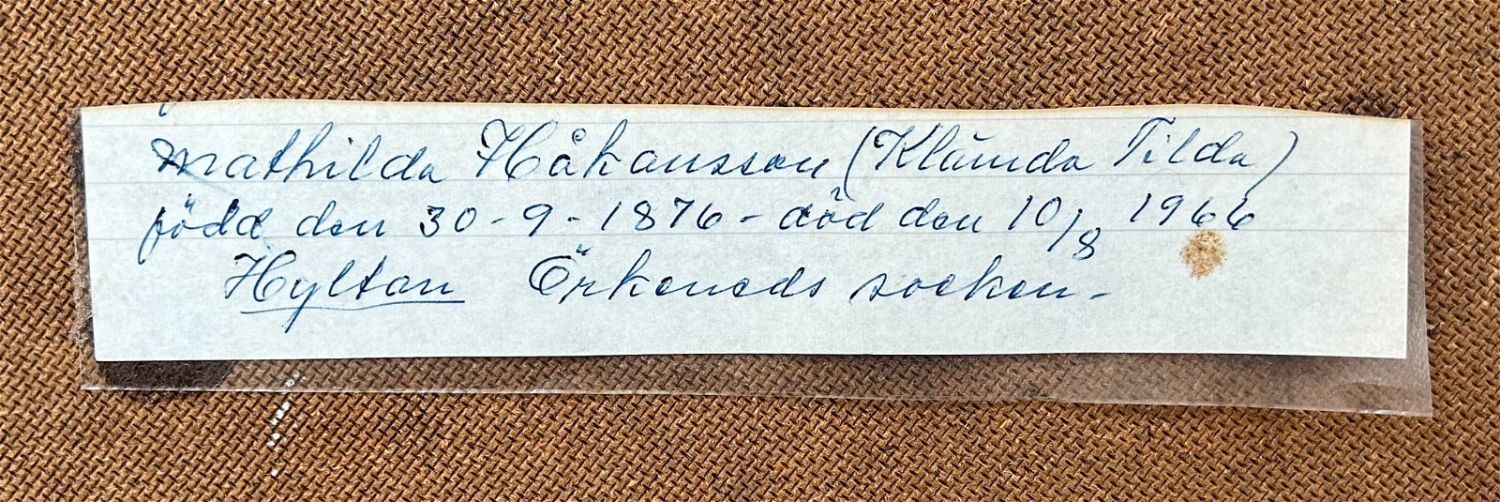 Mathilda Håkansson (Klämda Tilda)
född den 30-9-1876 - död den 10/8 1966
Hyltan Örkeneds socken -